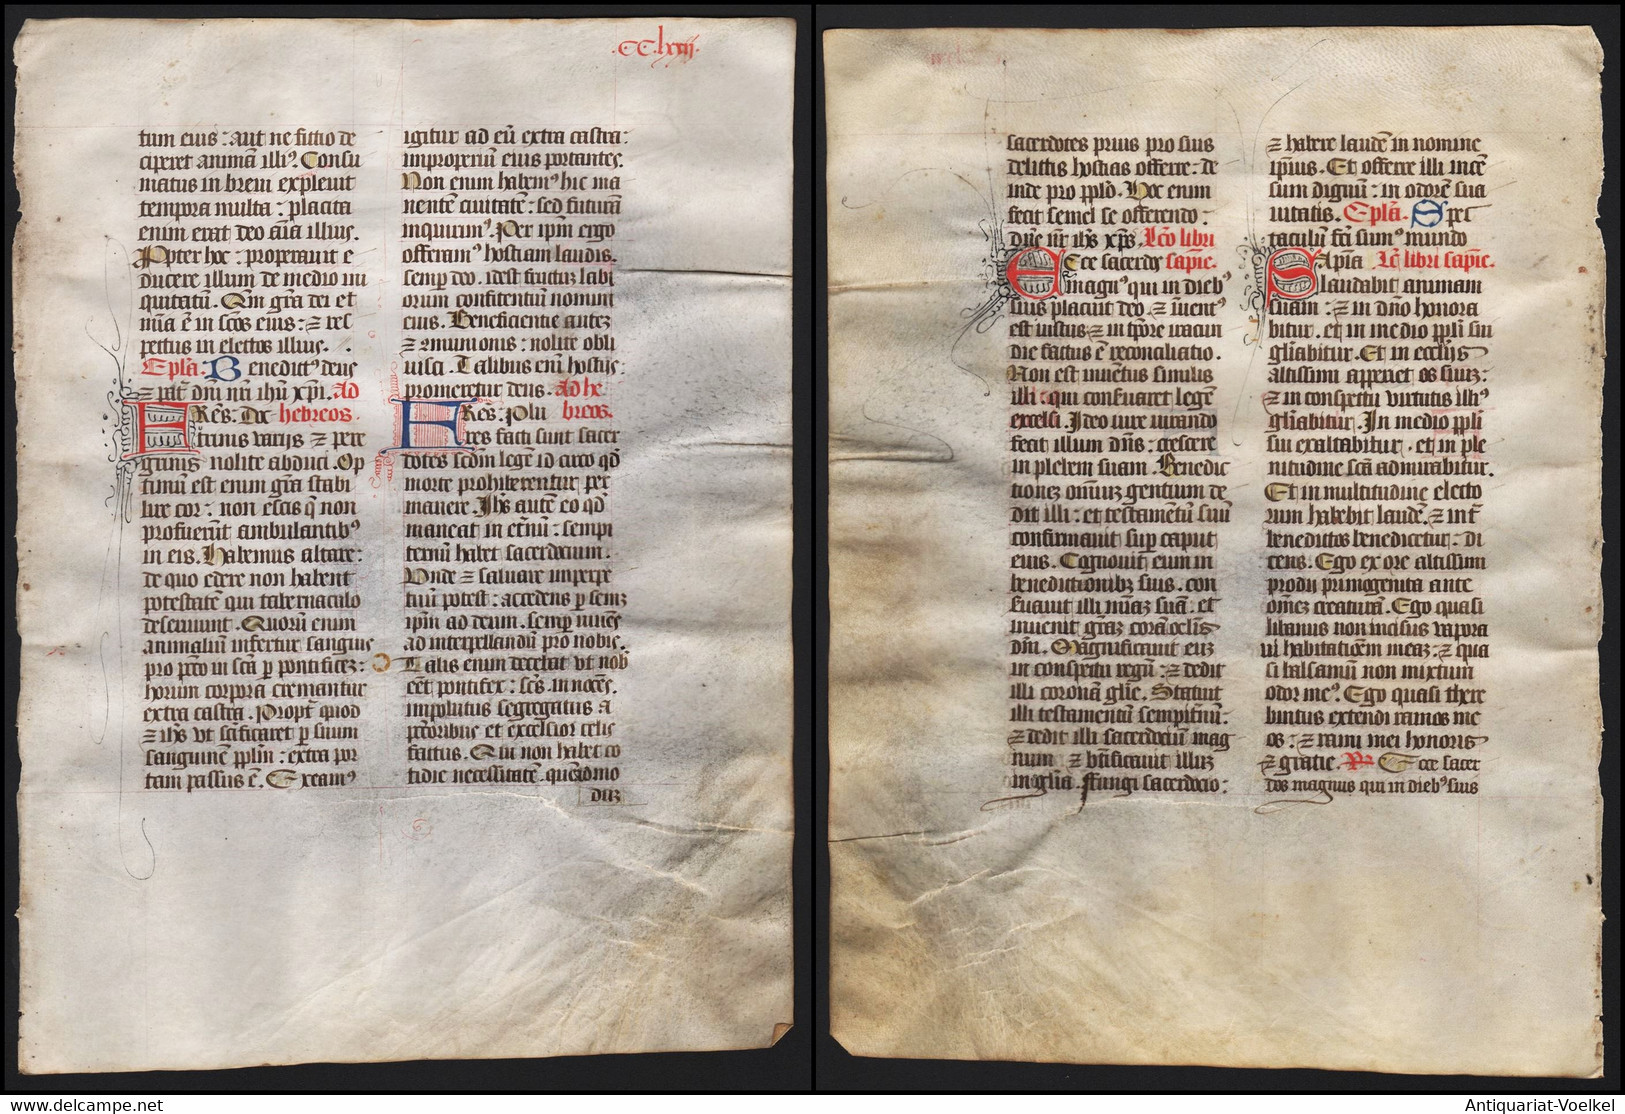 .CC.lxxij.
tum eius: aut ne fictio de
ciperet animā illi⁹. Consu
matus in brevi explevit
tempora multa: placita
enim erat deo aīa illius.
Ꝓpter hoc: properavit e
ducere illum de medio ini
quitatū. Qm̄ grā dei et
mīa ē in scōs eius: ⁊ res
pectus in electos illius.
Epl̄a: Benedict⁹ deus
⁊ pat̄ dnī nrī ihū xpī. Ad
FRēs. Doc hebreos.
trinis varijs ⁊ pere
grinis nolite abduci. Op
timū est enim grā stabi
lire cor: non escis q̄ non
profuerūt ambulantib⁹
in eis. Habemus altare:
de quo edere non habent
potestatē qui tabernaculo
deserviunt. Quorū enim
animaliū infertur sanguis
pro pctō in scā p pontificez:
horum corpora cremantur
extra castra. Propt̄ quod
⁊ ihs ut scificaret p suum
sanguinē pplm̄: extra por
tam passus ē. Exeam⁹
igitur ad eū extra castra:
improperiū eius portantes.
Non enim habem⁹ hic ma
nentē civitatē: sed futurā
inquirim⁹. Per ipm̄ ergo
offeram⁹ hostiam laudis
semp deo. id est fructus labi
orum confitentiū nomini
eius. Beneficientie autez
⁊ cōmunionis: nolite obli
visci. Talibus enī hostijs:
promeretur deus. Ad he
FRēs: Plu breos.
res facti sunt sacer
dotes scdm̄ legē id circo qd̄
morte prohiberentur per
manere. Ihs autē eo qd̄
maneat in et̄nū: sempi
ternū habet sacerdocium.
Unde ⁊ salvare in perpe
tuū potest: accedens p semz
ipm̄ ad deum. semp vivēs
ad interpellandū pro nobis.
Talis enim decebat ut nob̄
eēt pontifex: scs̄. innocēs.
impolutus segregatus a
pctōribus et excelsior celis
factus. Qui non habet co
tidie necessitatē. quēadmo
duz
sacerdotes prius pro suis
delictis hostias offerre: de
inde pro ppl̄o. Hoc enim
fecit semel se offerendo:
dn̄s nr̄ ihs xp̄s. Lcō libri
Ecce sacerdos sapīe.
magn⁹ qui in dieb⁹
suis placuit deo. ⁊ invent⁹
est iustus ⁊ in tpōre iracun
die factus ē reconciliatio.
Non est inventus similis
illi: qui consvaret legē
excelsi. Ideo iure iurando
fecit illum dn̄s: crescere
in plebem suam. Benedic
tionez omniuz gentium de
dit illi: et testamentū suū
confirmavit sup caput
eius. Cognovit eum in
benedictionibz suis. con
servavit illi mīaz suā. et
invenit grāz corā oclīs
dnī. Magnificavit euz
in conspctu regū: ⁊ dedit
illi coronam glīe. Statuit
illi testamentū sempit̄nū:
⁊ dedit illi sacerdociū mag
num ⁊ btīficavit illuz
in glīa. Fungi sacerdocio:
⁊ habere laudē in nomine
ipīus. Et offerre illi incē
sum dignū: in odorē sua
vitatis. Epl̄a. Spec
taculū fcī sum⁹ mundo
Sapīa Lcō libri sapīe.
laudabit animam
suam: ⁊ in dnō honora
bitur. et in medio ppl̄i sui
glīabitur. Et in eccl̄ijs
altissimi apperiet os suuz:
et in conspectu virtutis illi⁹
glīabitur. In medio ppl̄i
sui exaltabitur. et in ple
nitudine scā admirabitur.
Et in multitudine electo
rum habebit laudē. ⁊ int̄
benedictos benedicetur: di
cens. Ego ex ore altissimi
prodii primogenita ante
omēz creaturā. Ego quasi
libanus non incisus vapora
vi habitatiōem meaz: ⁊ qua
si balsamū non mixtum
odor me⁹. Ego quasi there
bintus extendi ramos me
os: ⁊ rami mei honoris
⁊ gratie. Ecce sacer
dos magnus qui in dieb⁹ suis
Antiquariat-Voelkel
delcampe.net